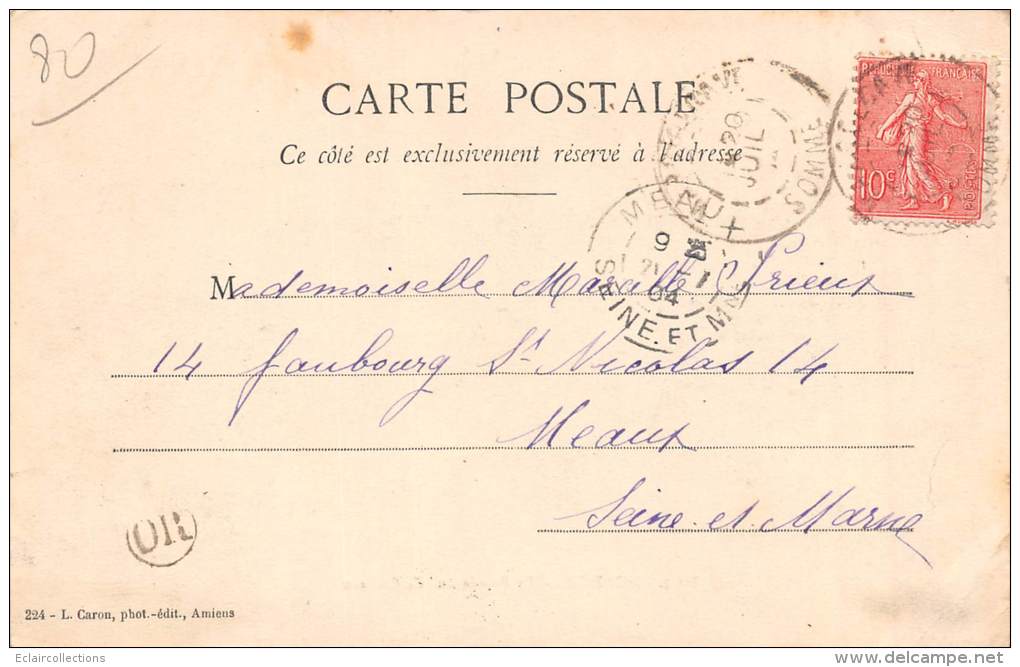 80
CARTE POSTALE
Ce côté est exclusivement réservé à l'adresse
RÉPUBLIQUE FRANÇAISE
10c
POSTES
20
JUIL
SOMME
MEAUX
9
04
SEINE. ET MNE
Mademoiselle Prieux
14 faubourg St Nicolas 14
Meaux
Seine-et-Marne
OR
224 - L. Caron, phot.-édit., Amiens
Eclaircollections
www.delcampe.net